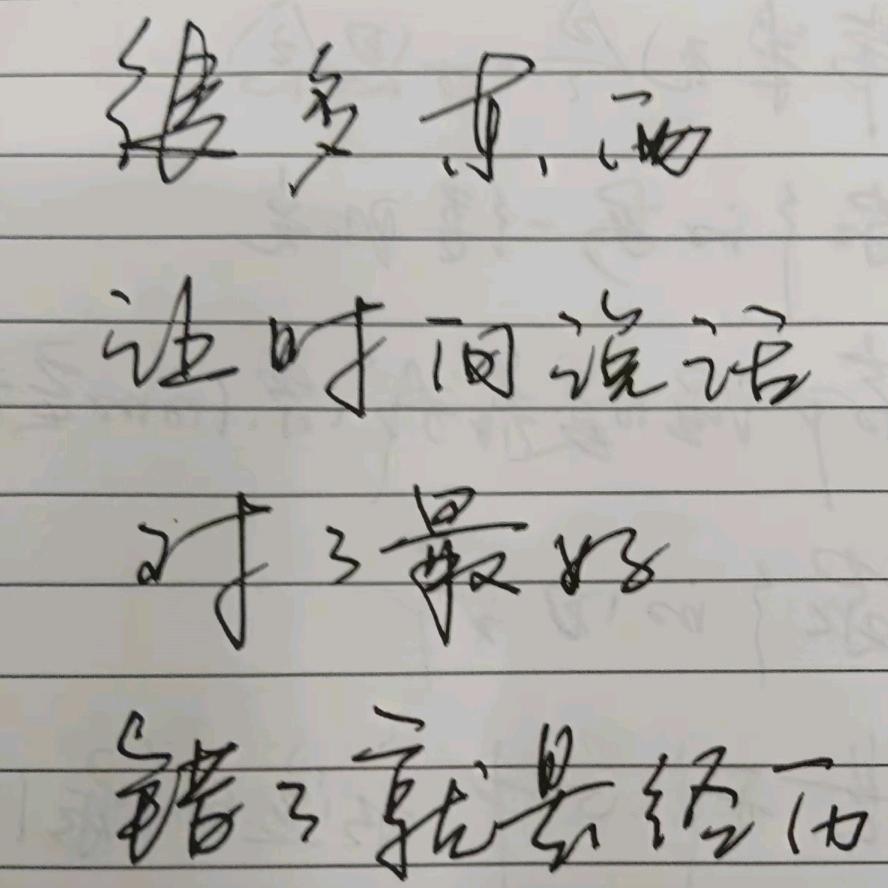 很多东西
让时间说话
对了最好
错了就是经历